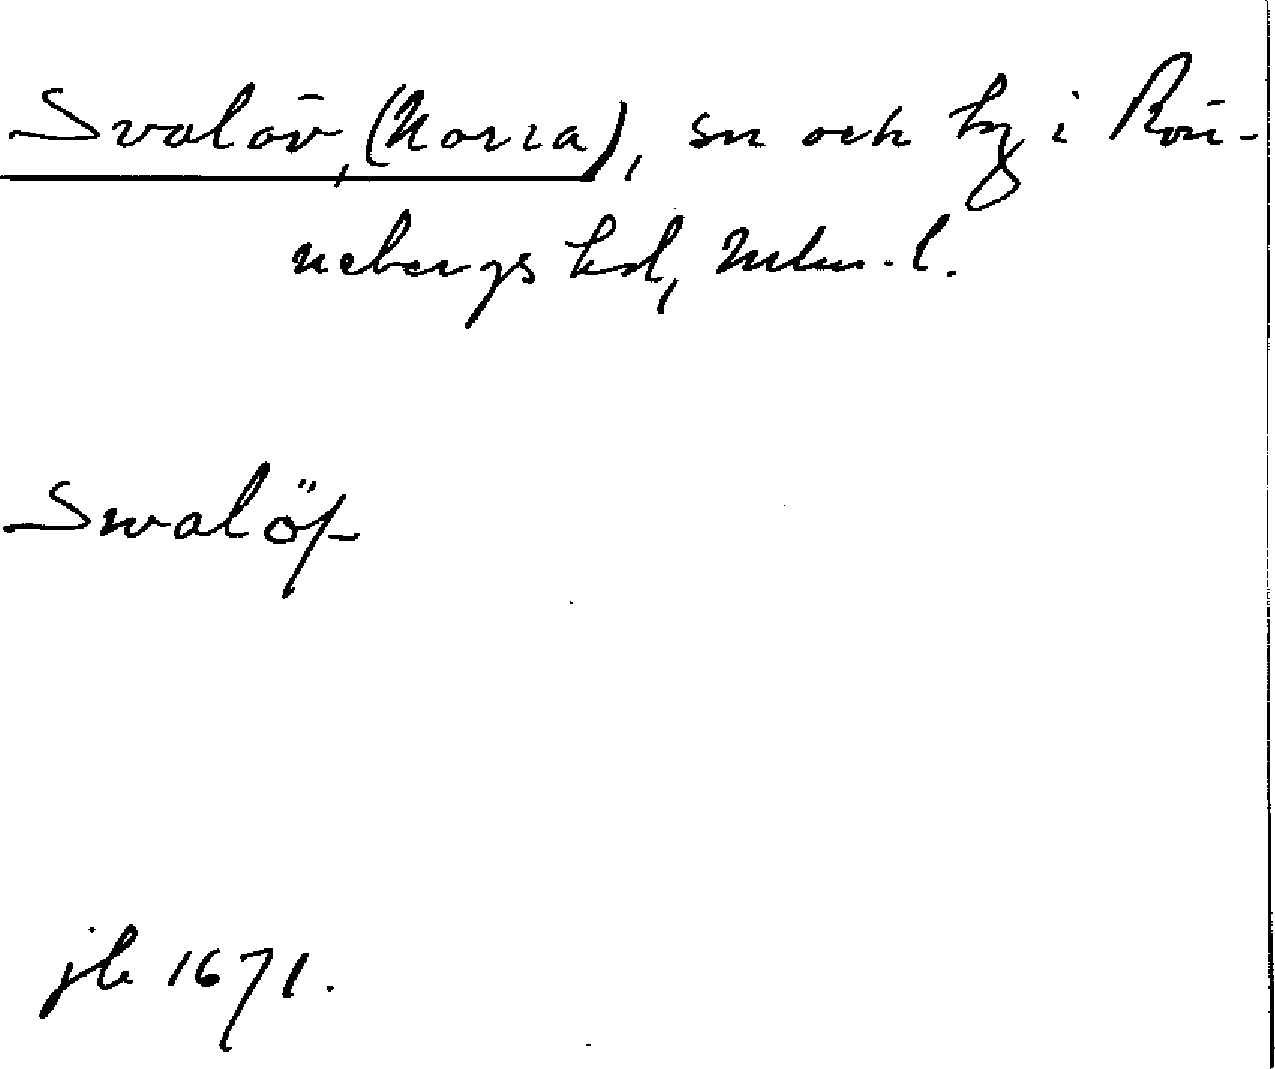 Svalöv, (Norra), sn och by i Rön-
nebergs hd, Mlm. l.
Swalöf
jb 1671.